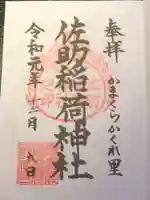 奉拝
かまくらかくれ里
佐助稲荷神社
令和元年十二月
九日